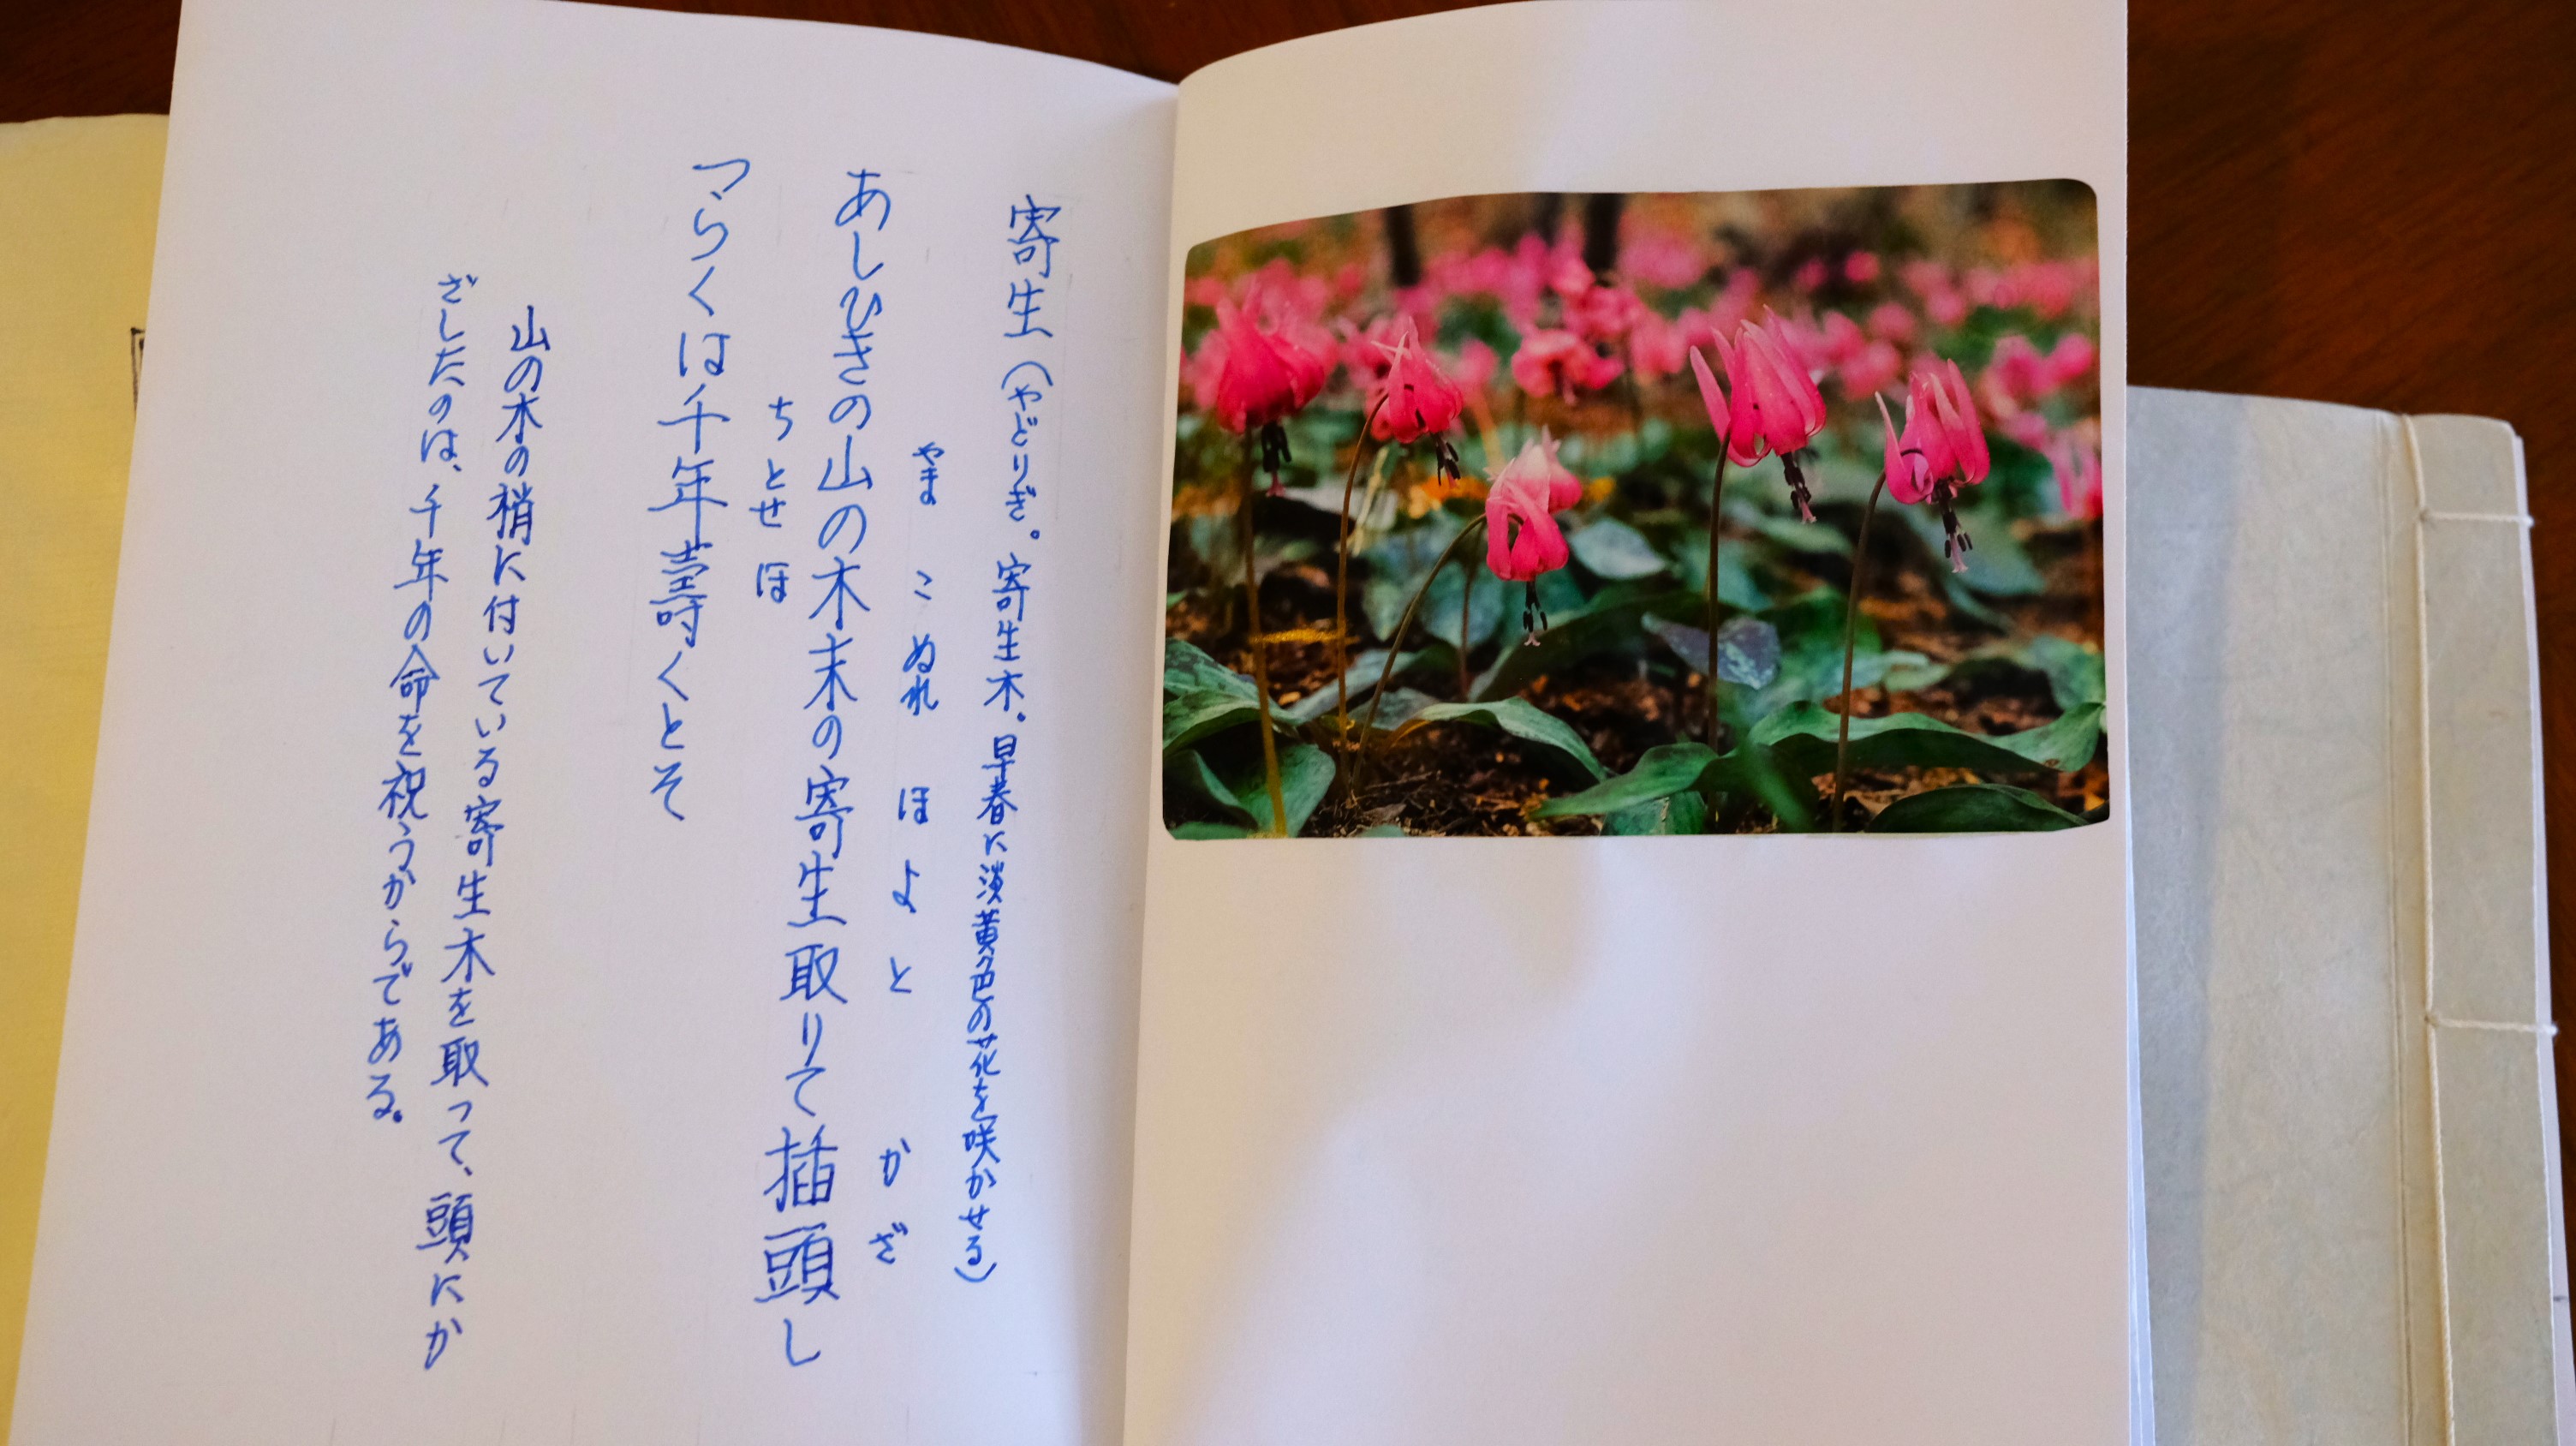 寄生(やどりぎ。寄生木。早春に淡黄色の花を咲かせる)
やま こぬれ ほよ と かざ
あしひきの山の木末の寄生取りて插頭し
ちとせ ほ
つらくは千年壽くとそ
山の木の梢に付いている寄生木を取って、頭にか
ざしたのは、千年の命を祝うからである。